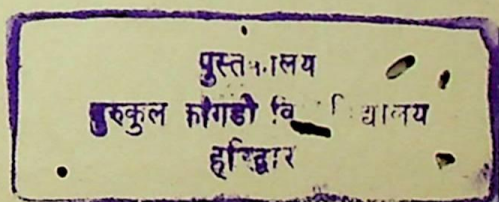 पुस्तकालय
गुरुकुल कांगडी वि द्यालय
हरिद्वार